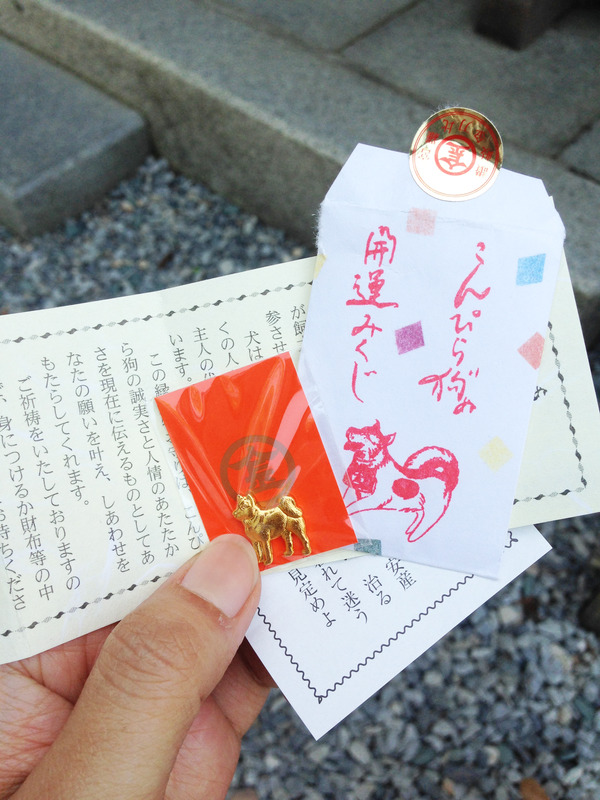 こんぴら狗の
開運みくじ
金
が飼
参させ
犬は
くの人
主人の
います。
この縁
りは、こんぴ
ら狗の誠実さと人情のあたたか
さを現在に伝えるものとしてあ
なたの願いを叶え、しあわせを
もたらしてくれます。
ご祈祷をいたしておりますの
で、身につけるか財布等の中
お持ちくださ
金
安産
治る
れて迷う
見定めよ